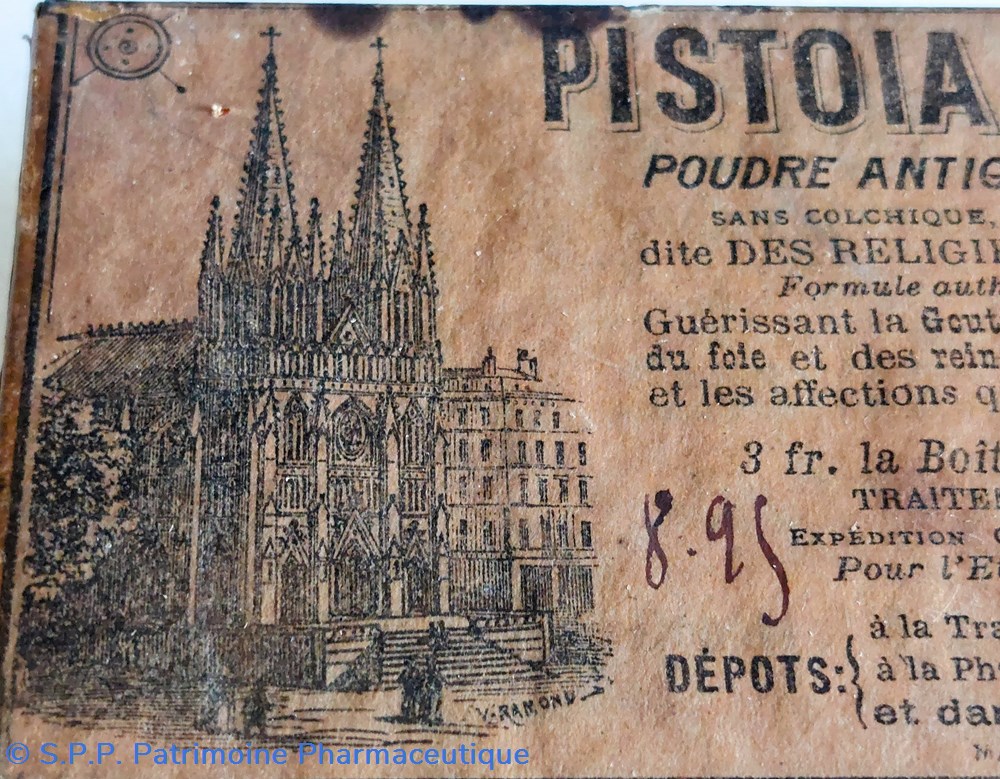 PISTOIA
POUDRE ANTIG
SANS COLCHIQUE,
dite DES RELIGI
Formule auth
Guérissant la Gout
du foie et des rein
et les affections q
3 fr. la Boît
8.95
TRAITE
EXPÉDITION
Pour l'E
à la Tra
DÉPOTS: à la Ph
et dan
V. RAMOND
© S.P.P. Patrimoine Pharmaceutique